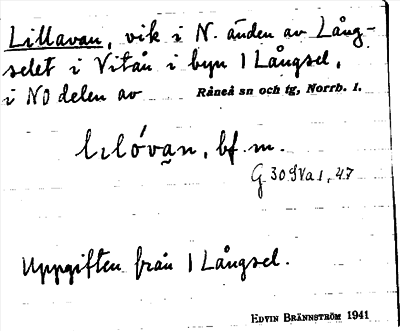 Lillavan, vik i N. änden av Lång-
selet i Vitån i byn 1 Långsel,
i NO delen av Råneå sn och tg, Norrb. l.
lɩlóva̮n, bf. m.
G 30 SVa 1, 47
Uppgiften från 1 Långsel.
EDVIN BRÄNNSTRÖM 1941